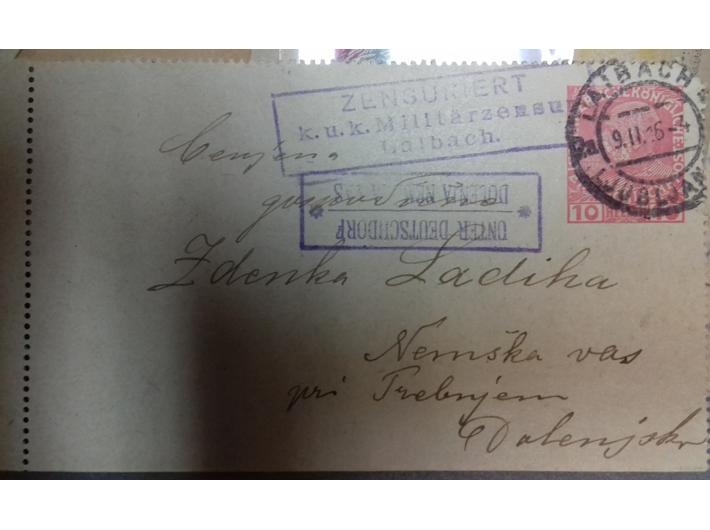 ZENSURIERT
k.u.k. Militärzensur
Laibach.
LAIBACH
9.II.16
LJUBLJANA
10
Cenjena
gospodična
UNTER DEUTSCHDORF
DOLENJA NEM. VAS
Zdenka Ladiha
Nemška vas
pri Trebnjem
Dolenjsko